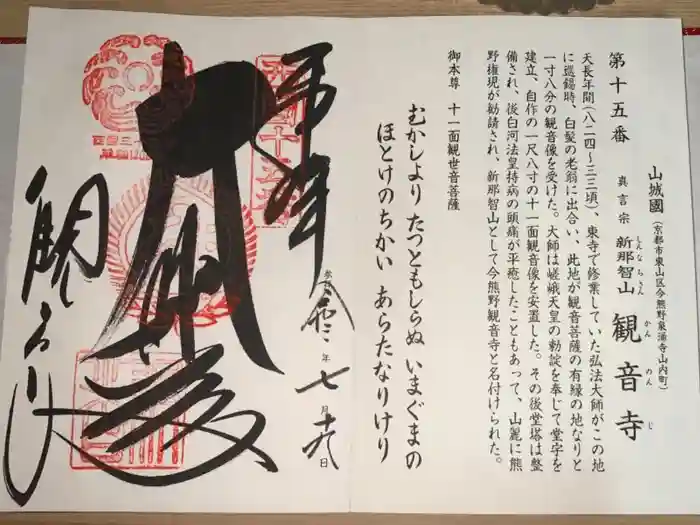 山城國
（京都市東山区今熊野泉涌寺山内町）
第十五番
真言宗
新那智山
しんなちさん
観音寺
かんのんじ
天長年間（八二四～三三頃）、東寺で修業していた弘法大師がこの地
に巡錫時、白髪の老翁に出合い、此地が観音菩薩の有縁の地なりと
一寸八分の観音像を受けた。大師は嵯峨天皇の勅諚を奉じて堂宇を
建立、自作の一尺八寸の十一面観音像を安置した。その後堂塔は整
備され、後白河法皇持病の頭痛が平癒したこともあって、山麗に熊
野権現が勧請され、新那智山として今熊野観音寺と名付けられた。
御本尊　十一面観世音菩薩
むかしより たつともしらぬ いまぐまの
ほとけのちかい あらたなりけり
奉拝
令和二年七月十九日